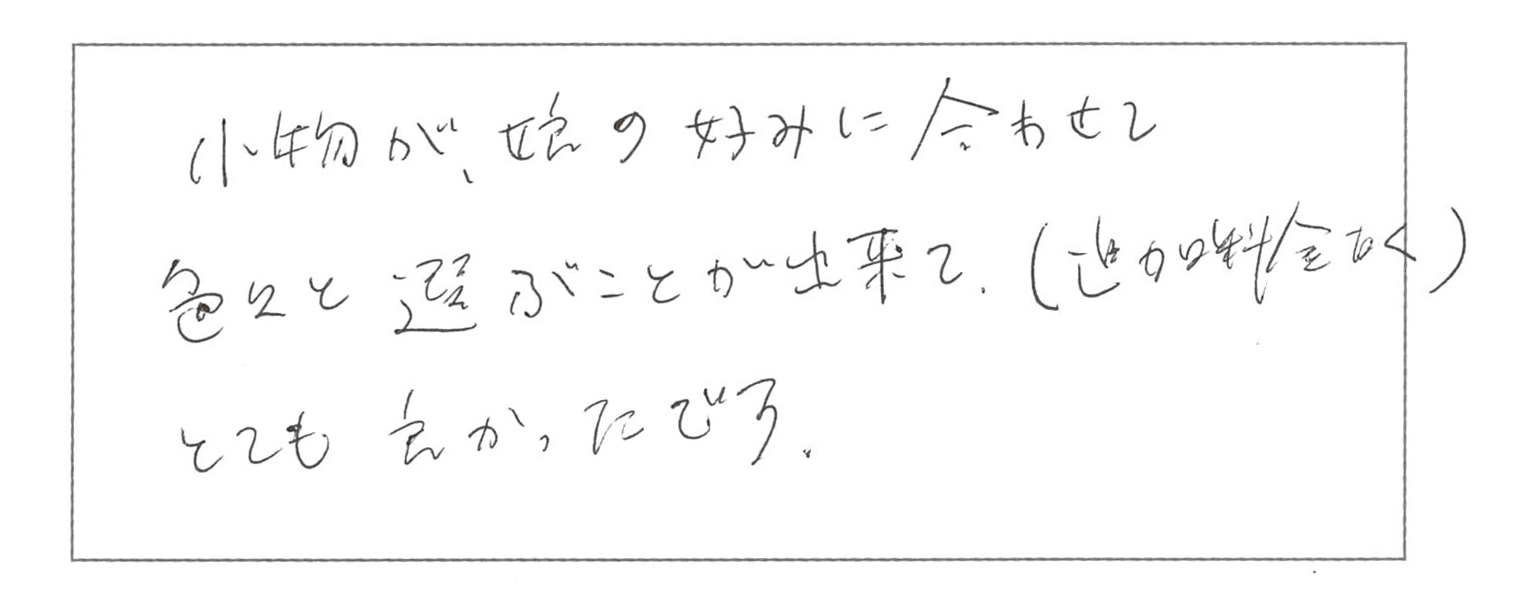 小物が、娘の好みに合わせて
色々と選ぶことが出来て、(追加料金なく)
とても良かったです。